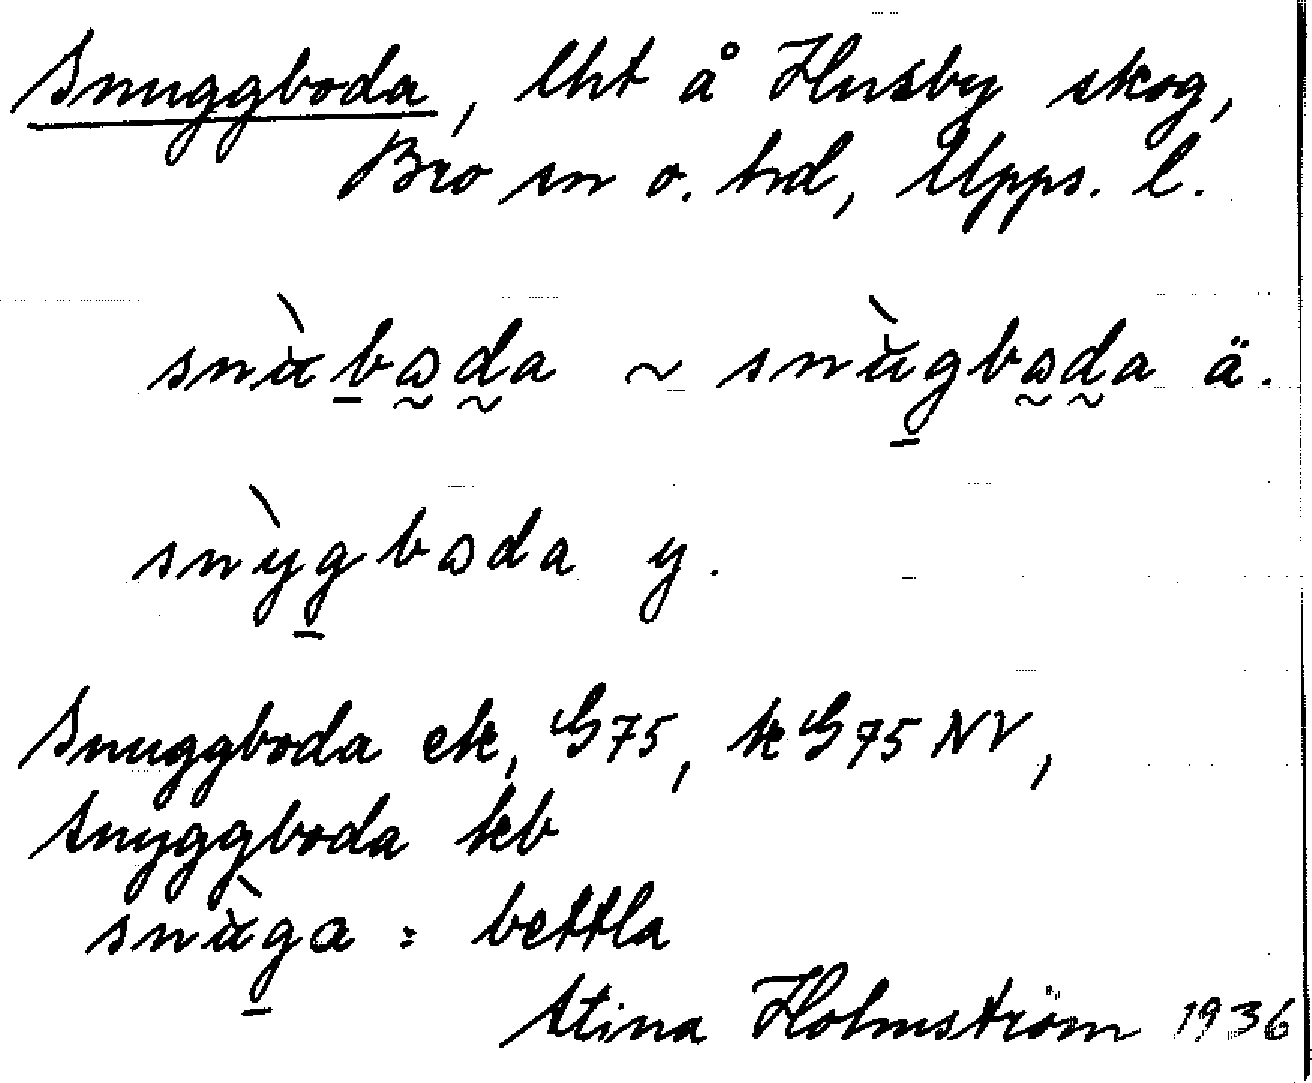 Snuggboda, lht å Husby skog,
Bro sn o. hd, Upps. l.
snùbɷda ~ snùgbɷda ä.
snỳgbɷda y.
Snuggboda ek, G75, kG75 NV,
Snyggboda kb
snùga = bettla
Stina Holmström 1936